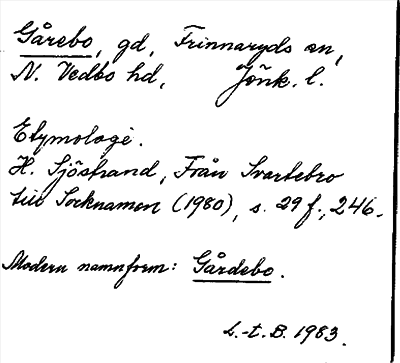 Gårebo, gd, Frinnaryds sn,
N. Vedbo hd, Jönk. l.
Etymologi.
H. Sjöstrand, Från Svartebro
till Socknamen (1980), s. 29 f., 246.
Modern namnform: Gårdebo.
L.-t. B. 1983.